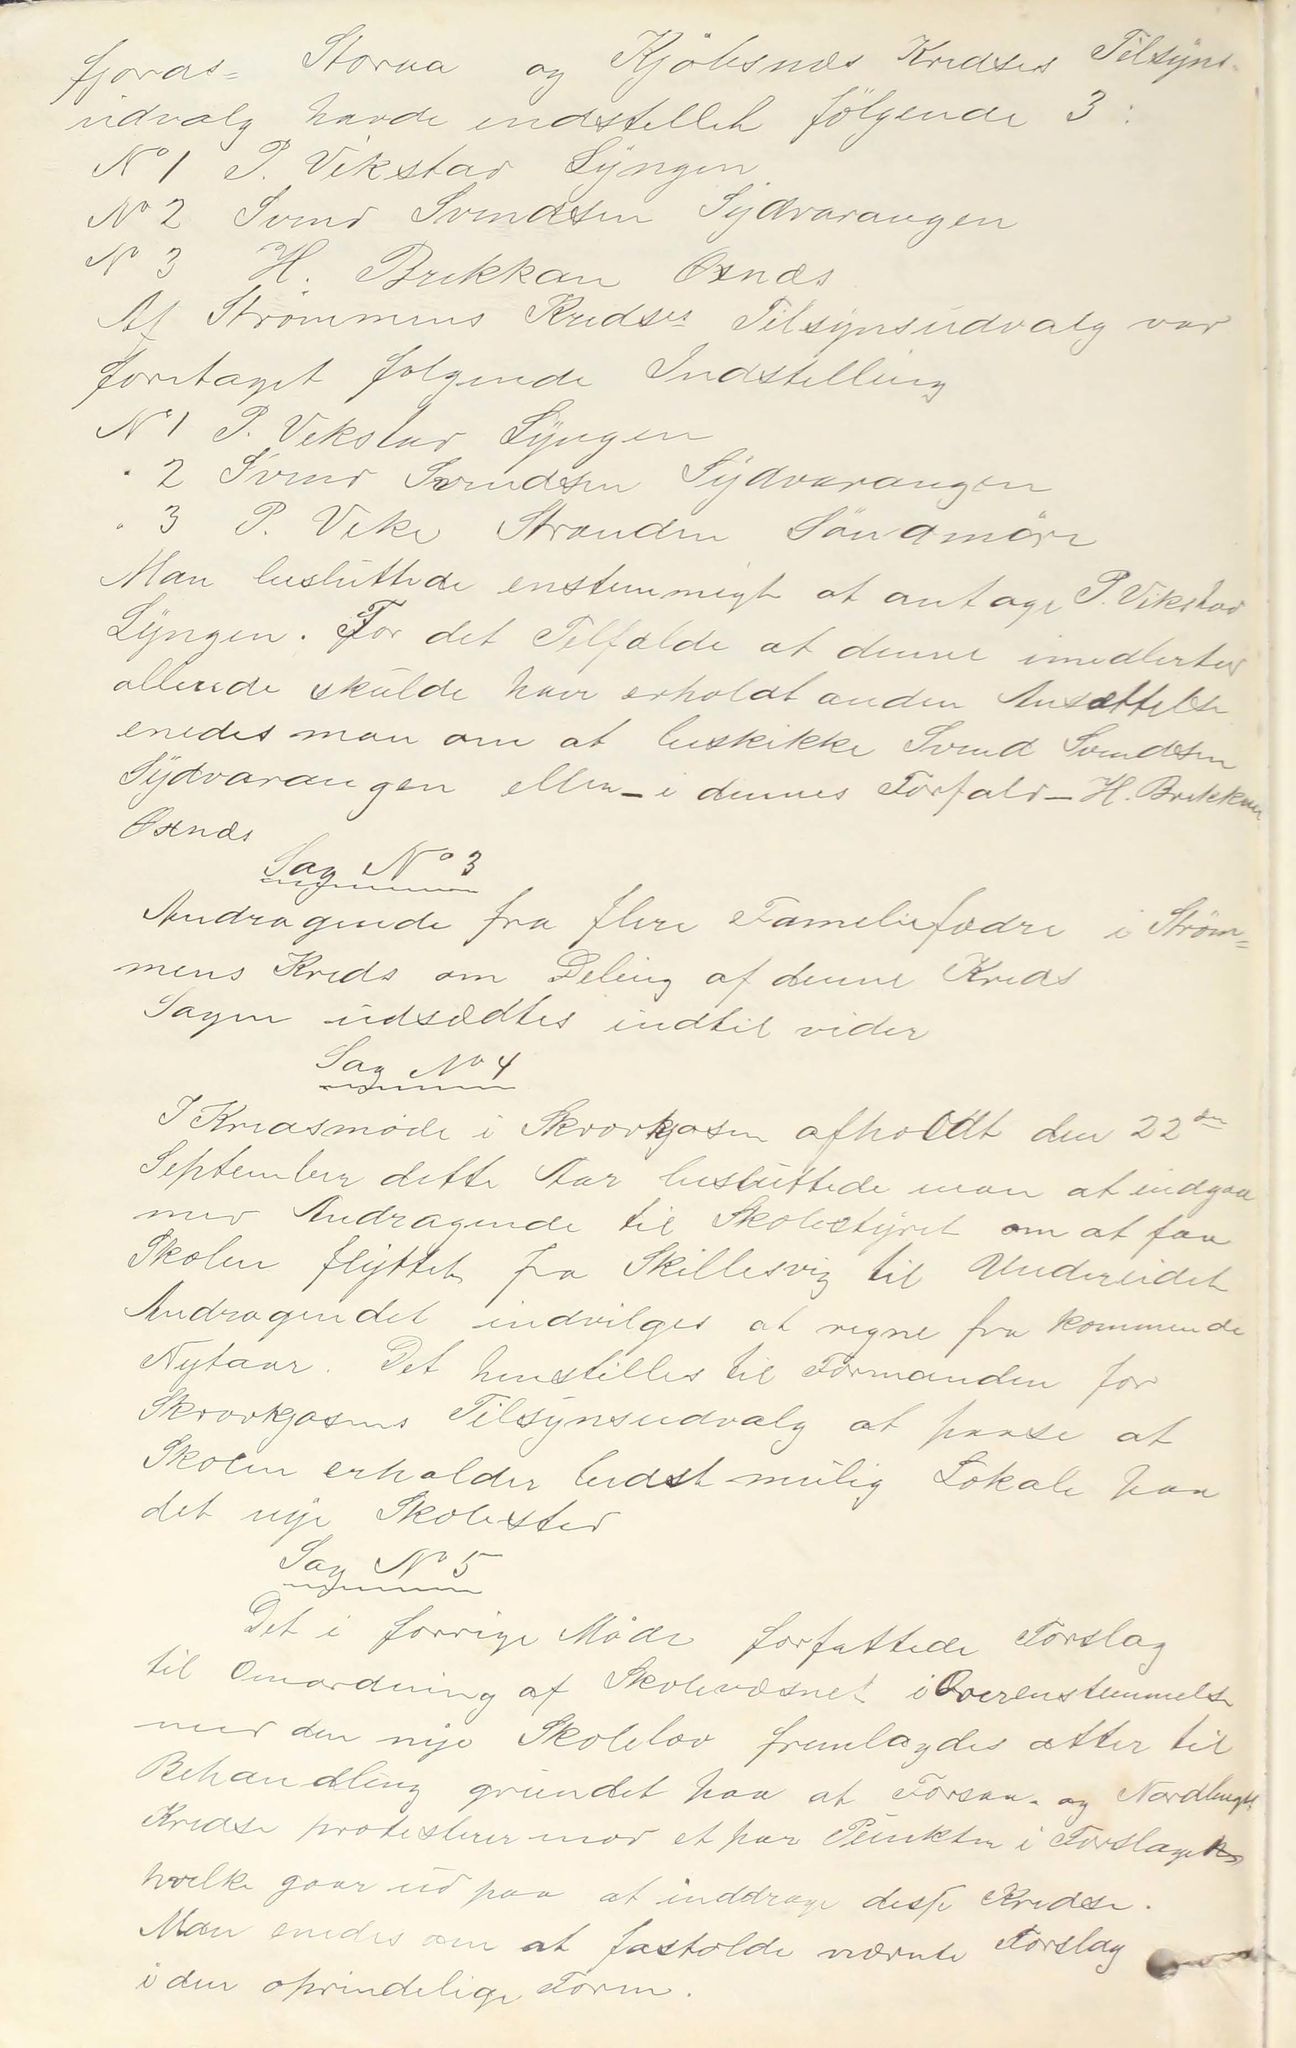 fjords- Storaa og Kjöbsnæs Kredses Tilsyns-
udvalg havde indstillet fölgende 3:
No 1 P. Vikstad Lyngen
No 2 Svend Svendsen Sydvarangen
No 3 H. Brekkan Öxnæs
Af Strömmens Kredses Tilsynsudvalg var
foretaget følgende Indstilling
No 1 P. Vikstad Lyngen
" 2 Svend Svendsen Sydvarangen
" 3 P. Vike Stranden Söndmöre
Man besluttede enstemmigt at antage P. Vikstad
Lyngen. For det Tilfælde at denne imidlertid
allerede skulde have erholdt anden Ansættelse
enedes man om at beskikke Svend Svendsen
Sydvarangen eller – i dennes Forfald – H. Brekkan
Öxnæs
Sag No 3
Andragende fra flere Familiefædre i Ström-
mens Kreds om Deling af denne Kreds
Sagen udsædtes indtil vider
Sag No 4
I Kredsmöde i Skrovkjosen afholdt den 22de
September dette Aar besluttede man at indgaa
med Andragende til Skolestyret om at faa
Skolen flyttet fra Skillesvig til Undereidet
Andragendet indvilges at regne fra kommende
Nytaar. Det henstilles til Formanden for
Skrovkjosens Tilsynsudvalg at paase at
Skolen erholder bedst mulig Lokale paa
det nye Skolested
Sag No 5
Det i forrige Möde forfattede Forslag
til Omordning af Skolevæsnet i Overenstemmelse
med den nye Skolelov fremlagdes atter til
Behandling grundet paa at Forsaa- og Nordbugts
Kredse protesterer mod et par Punkter i Forslaget
hvilke gaar ud paa at inddrage disse Kredse.
Man enedes om at fastolde nævnte Forslag
i den oprindelige Form.